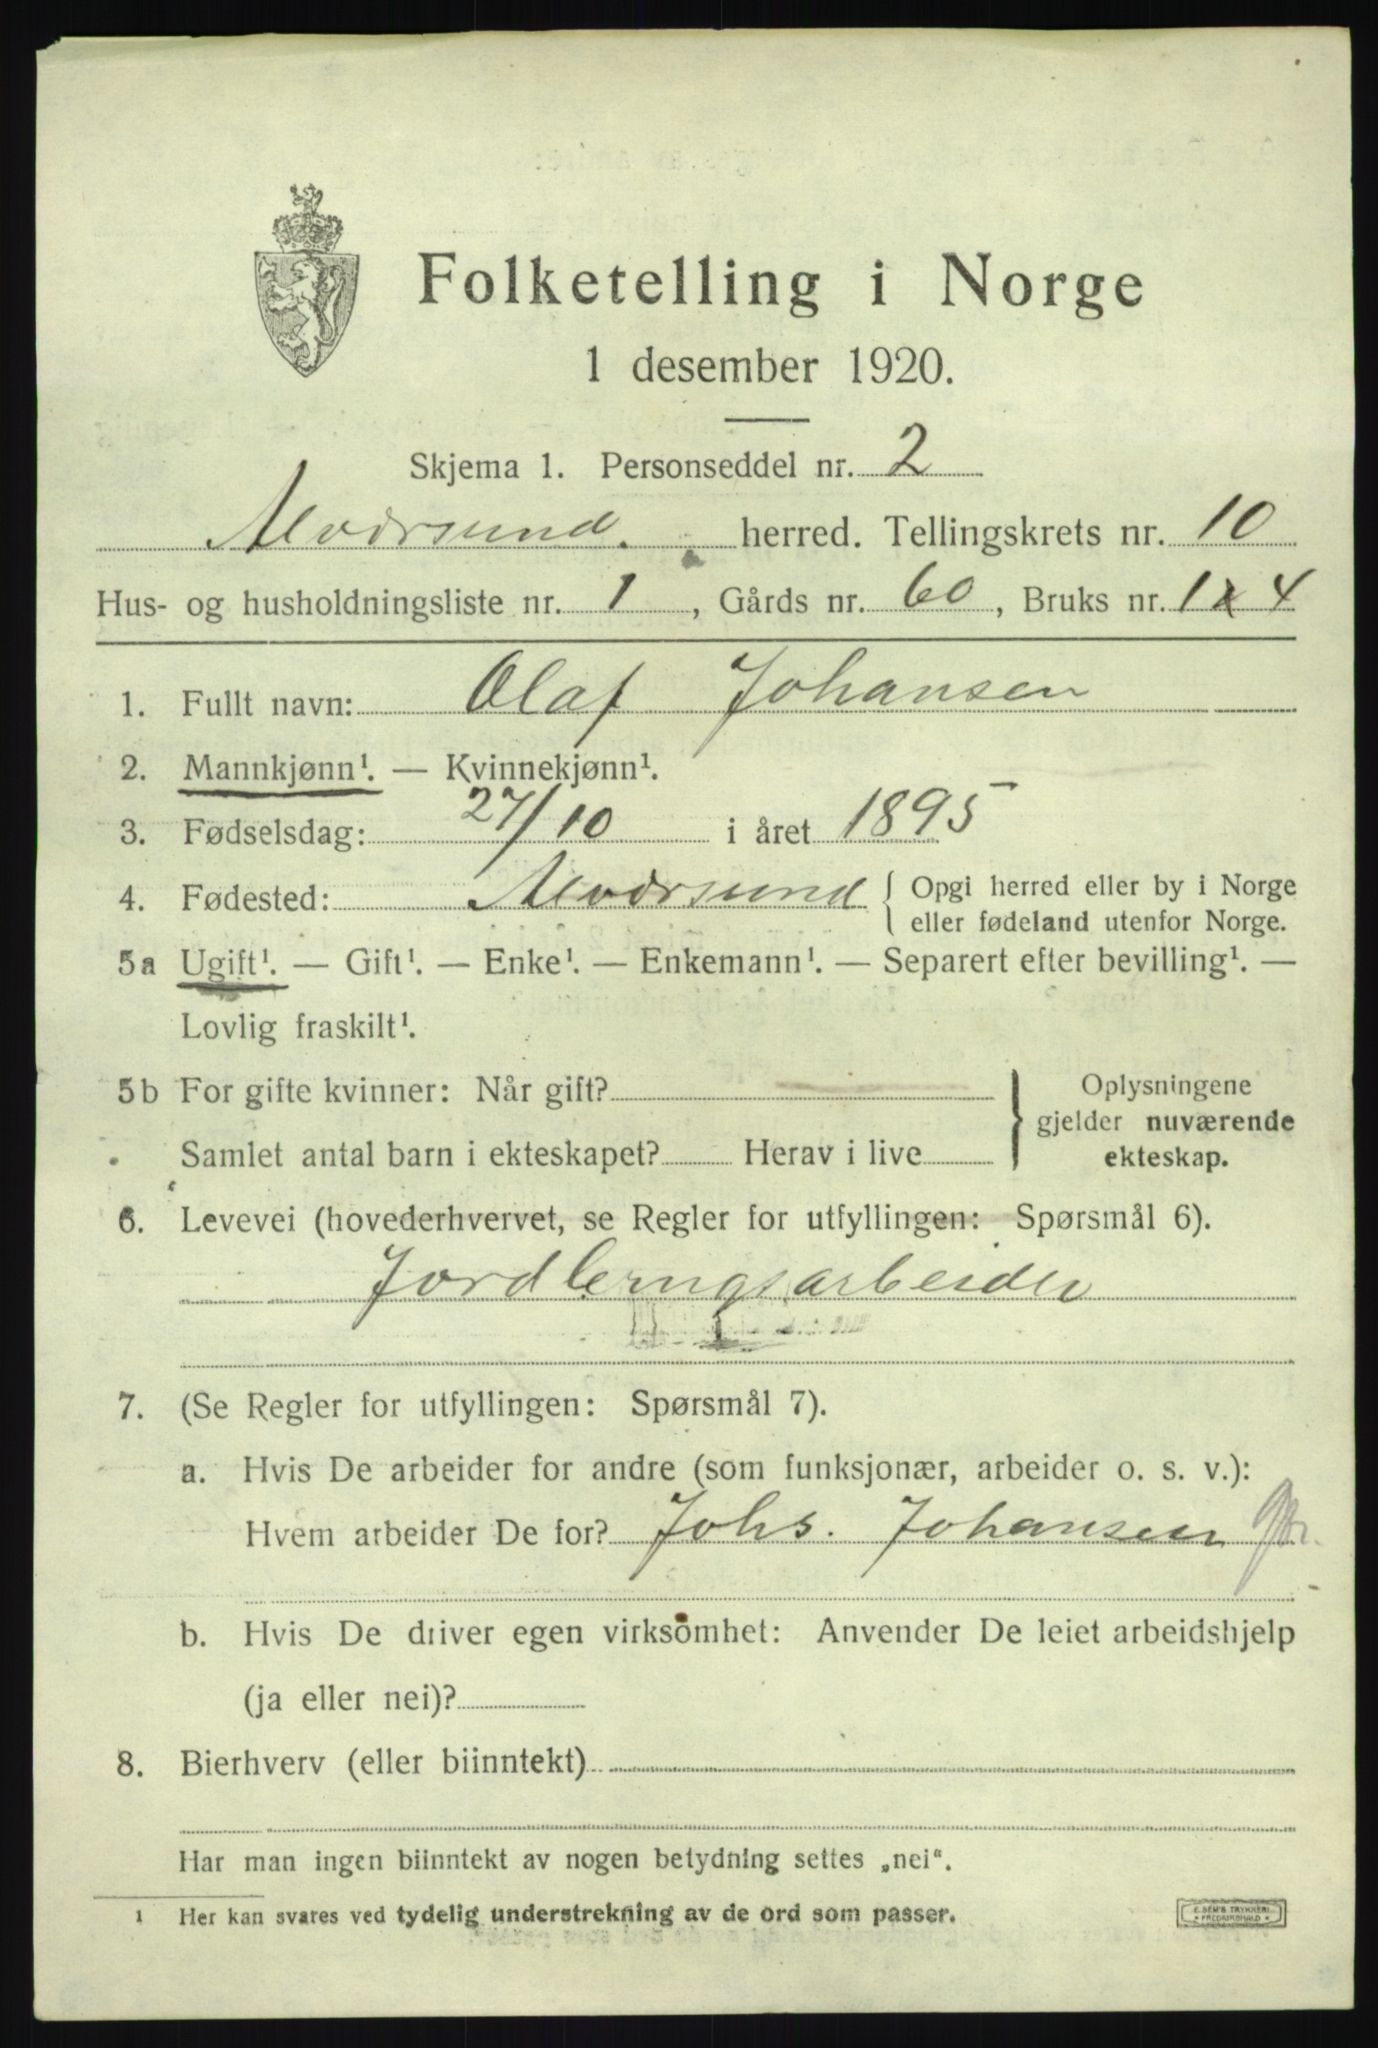 Folketelling i Norge
1 desember 1920.
Skjema 1. Personseddel nr. 2
Alversund. herred. Tellingskrets nr. 10
Hus- og husholdningsliste nr. 1, Gårds nr. 60, Bruks nr. 1 4
1. Fullt navn: Olaf Johansen
2. Mannkjønn¹. — Kvinnekjønn¹.
3. Fødselsdag: 27/10 i året 1895
4. Fødested: Alversund { Opgi herred eller by i Norge
eller fødeland utenfor Norge.
5a Ugift¹. — Gift¹. — Enke¹. — Enkemann¹. — Separert efter bevilling¹. —
Lovlig fraskilt¹.
5b For gifte kvinner: Når gift? } Oplysningene
gjelder nuværende
Samlet antal barn i ekteskapet? Herav i live ekteskap.
6. Levevei (hovederhvervet, se Regler for utfyllingen: Spørsmål 6).
Jordbrugsarbeider
7. (Se Regler for utfyllingen: Spørsmål 7).
a. Hvis De arbeider for andre (som funksjonær, arbeider o. s. v.):
Hvem arbeider De for? Johs. Johansen
b. Hvis De driver egen virksomhet: Anvender De leiet arbeidshjelp
(ja eller nei)?
8. Bierhverv (eller biinntekt)
Har man ingen biinntekt av nogen betydning settes „nei“.
1 Her kan svares ved tydelig understrekning av de ord som passer.
E. SEM'S TRYKKERI
FREDRIKSHALD